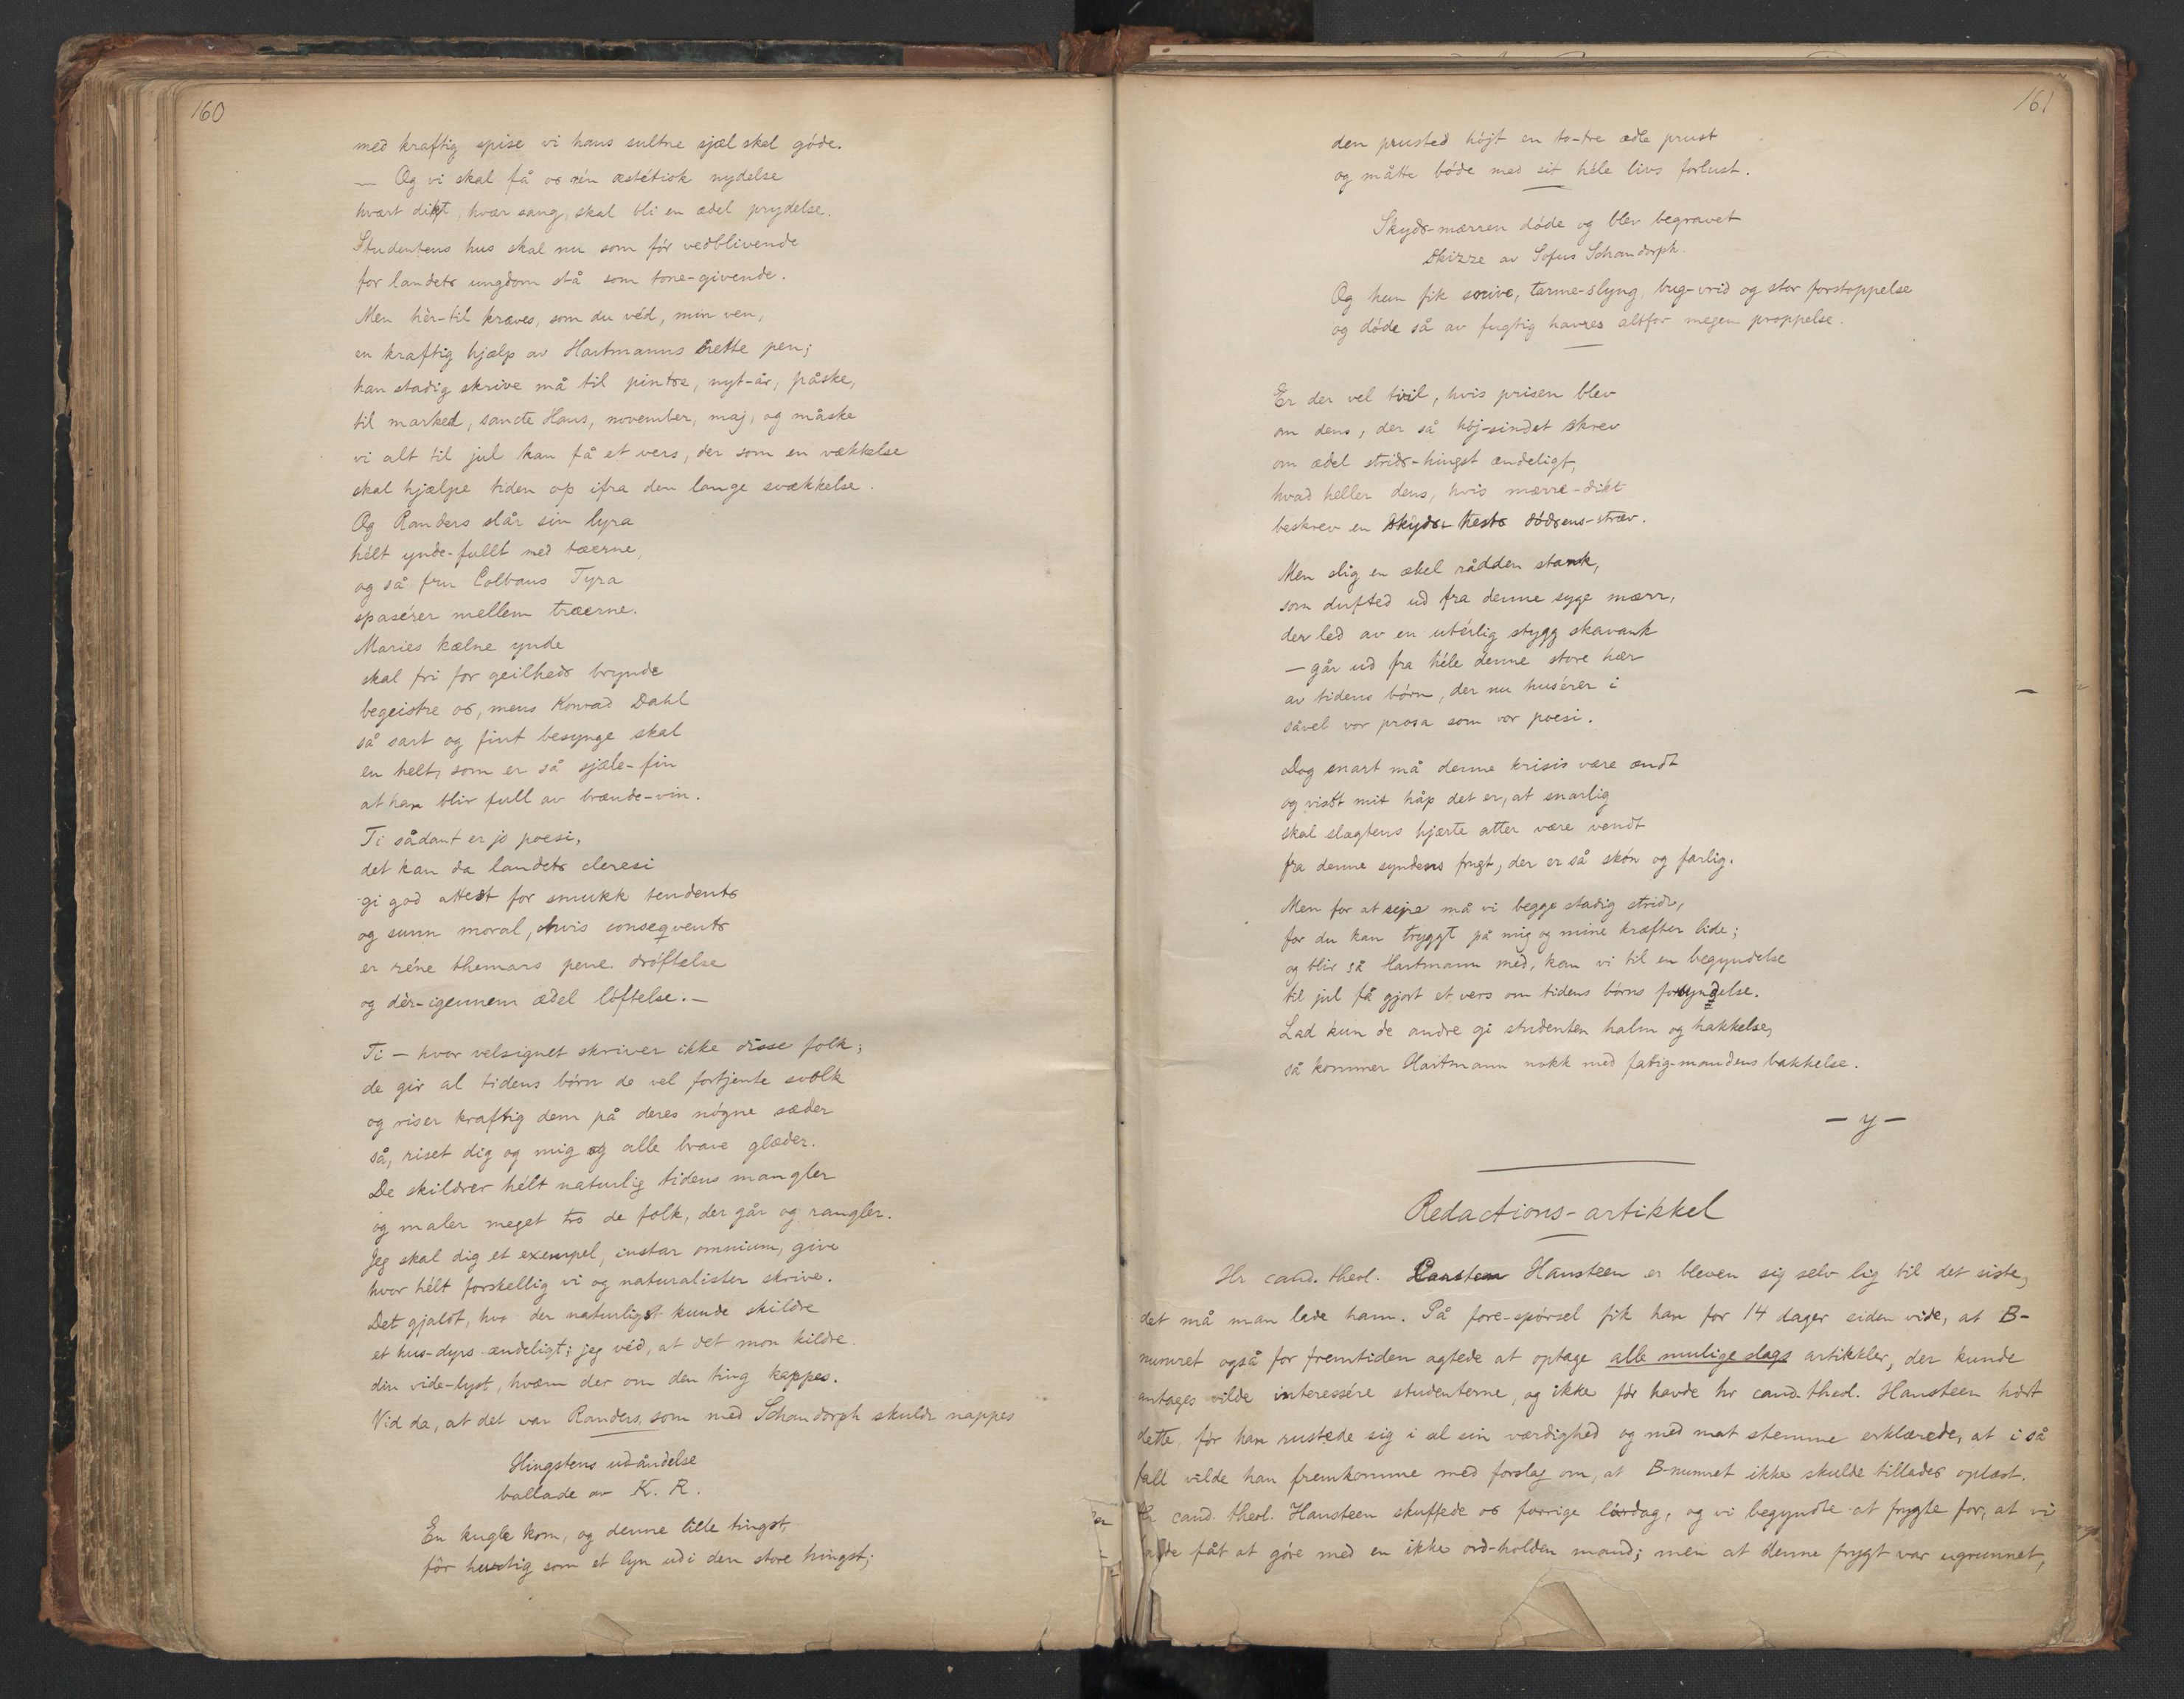 160
med kraftig spise vi hans sultne sjæl skal góde.
— Og vi skal få os rén æstétisk nydelse
hvært dikt, hvær sang, skal bli en ædel prydelse.
Studentens hus skal nu som fór vedblivende
for landets ungdom stå som tone-givende.
Men hèr-til kræves, som du véd, min ven,
en kraftig hjælp av Hartmanns lrette pen;
han stadig skrive må til pintse, nyt-år, påske,
til marked, sancte Hans, november, maj, og måske
vi alt til jul kan få et vers, der som en vækkelse
skal hjælpe tiden op ifra den lange svækkelse.
Og Randers slår sin lyra
hélt ynde-fullt med tæerne,
og så fru Colbans Tyra
spasérer mellem træerne.
Maries kælne ynde
skal fri for geilheds brynde
begeistre os, mens Konrad Dahl
så sart og fint besynge skal
en helt, som er så sjæle-fin
at han blir full av brænde-vin.
Ti sådant er jo poesi,
det kan da landets cleresi
gi god attest for smukk tendents
og sunn moral, hvis conseqvents
er réne themars pene dróftelse
og dèr-igennem ædel lóftelse. —
Ti — hvor velsignet skriver ikke disse folk;
de gir al tidens bórn de vel fortjente svolk
og riser kraftig dem på deres nógne sæder
så, riset dig og mig og alle brave glæder.
De skildrer hélt naturlig tidens mangler
og maler meget tro de folk, der går og rangler.
Jeg skal dig et exempel, instar omnium, give
hvor hélt forskellig vi og naturalister skrive.
Det gjaldt, hvo der naturligst kunde skildre
et hus-dyrs ændeligt; jeg véd, at det mon kildre
din vide-lyst, hværn der om den ting kappes.
Vid da, at det var Randers, som med Schandorph skulde nappes
Hingstens udåndelse
ballade av K. R.
En kugle kom, og denne lille tingst,
fór hurtig som et lyn udi den store hingst;
161
den prusted hójt en to-tre ædle prust
og måtte bóde med sit héle livs forlust.
Skyds-mærren dóde og blev begravet
Skizze av Sofus Schandorph.
Og hun fik scrive, tarme-slyng, bug-vrid og stor forstoppelse
og dóde så av fugtig havres altfor megen proppelse.
Er der vel tvil, hvis prisen blev
om dens, der så hój-sindet skrev
om ædel strids-hingst ændeligt,
hvad heller dens, hvis mærre-dikt
beskrev en skyds-hests dódsens-stræv.
Men slig en ækel rådden stank,
som dufted ud fra denne syge mærr,
der led av en utérlig stygg skavank
— går ud fra héle denne store hær
av tidens bórn, der nu husérer i
såvel vor prosa som vor poesi.
Dog snart må denne krisis være ændt
og visst mit håp det er, at snarlig
skal slægtens hjærte atter være vendt
fra denne syndens frugt, der er så skón og farlig.
Men for at sejre må vi begge stadig stride,
for du kan tryggt på mig og mine kræfter lide;
og blir så Hartmann med, kan vi til en begyndelse
til jul få gjort et vers om tidens bórns forsyndelse.
Lad kun de andre gi studenten halm og hakkelse,
så kommer Hartmann nokk med fattig-mandens bakkelse.
— y —
Redactions-artikkel
Hr cand. theol. Hansteen er bleven sig selv lig til det siste,
det må man lade ham. På fore-spórsel fik han for 14 dager siden vide, at B-
numret også for fremtiden agtede at optage alle mulige slags artikkler, der kunde
antages vilde interessére studenterne, og ikke fór havde hr cand. theol. Hansteen hórt
dette, fór han rustede sig i al sin værdighed og med mat stemme erklærede, at i så
fall vilde han fremkomme med forslag om, at B-numret ikke skulde tillades oplæst.
Hr cand. theol. Hansteen skuffede os forrige lórdag, og vi begyndte at frygte for, at vi
havde fåt at góre med en ikke ord-holden mand; men at denne frygt var ugrunnet,